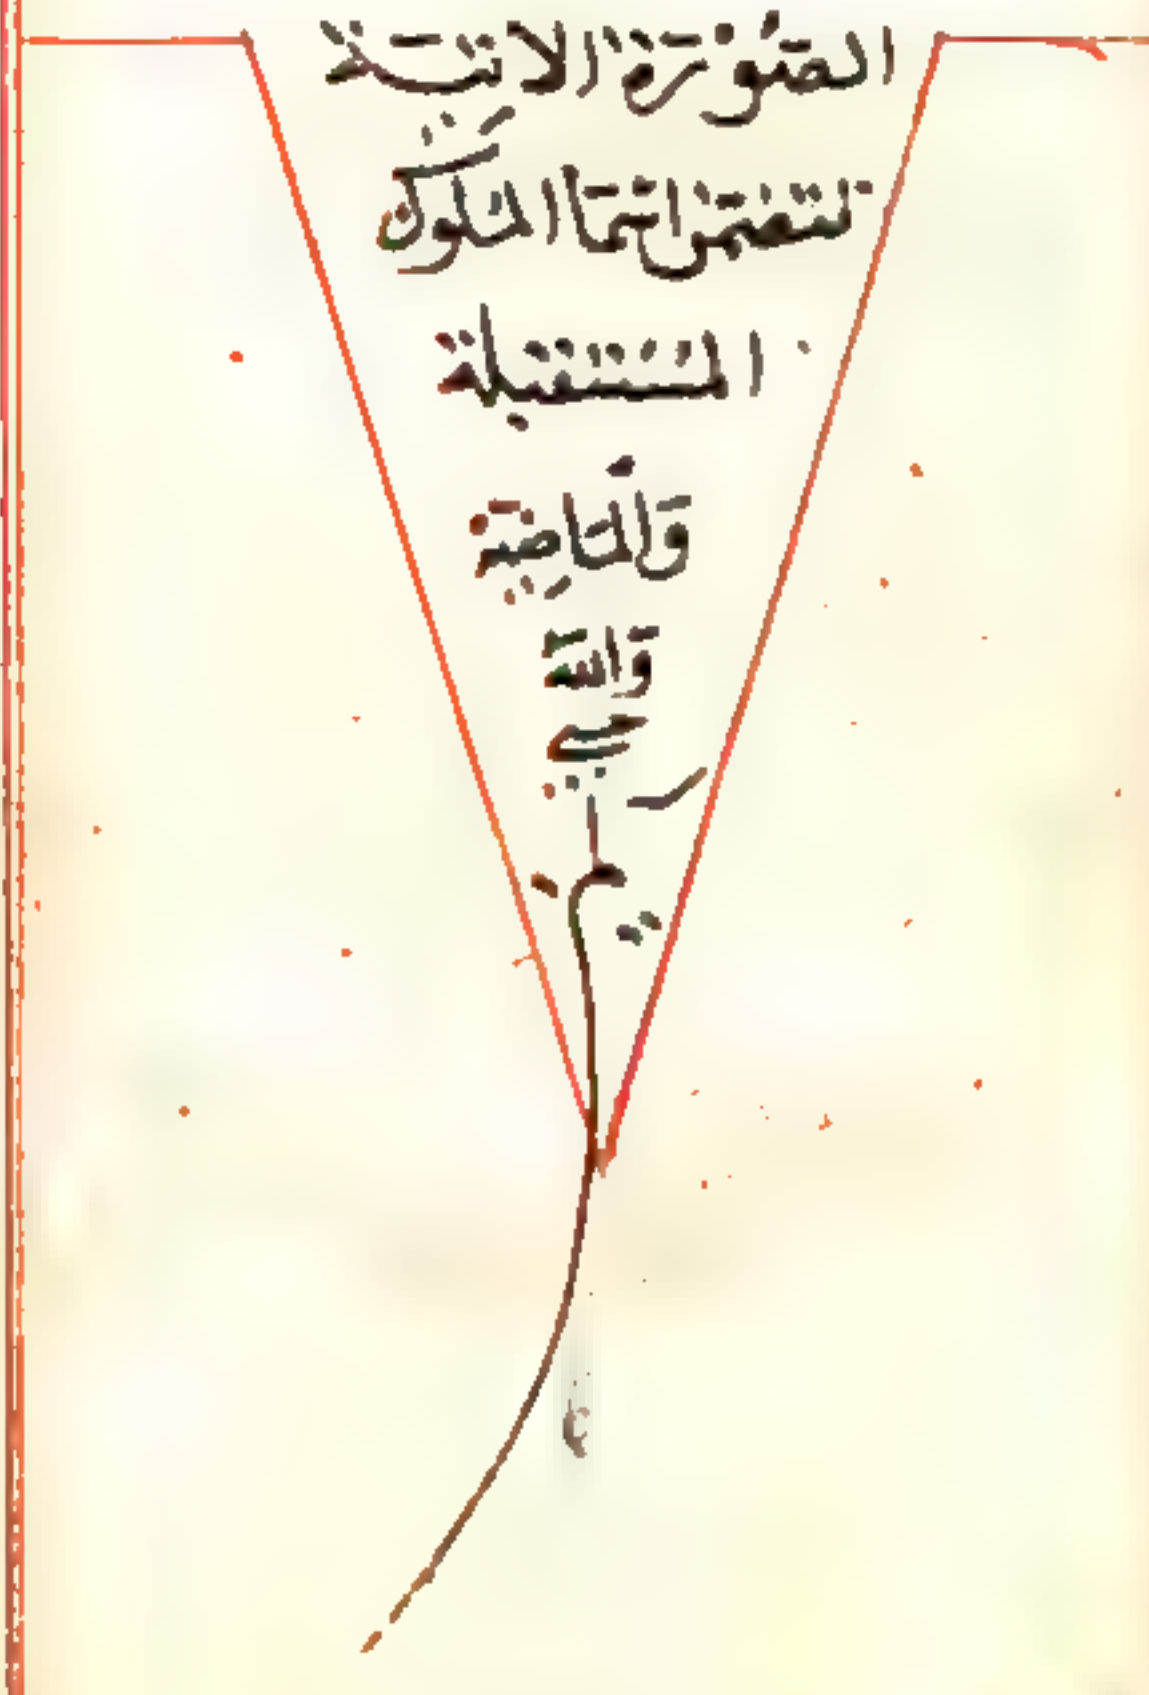 الصورة الاتية
تتضمن اسما الملوك
المستقبلة
والماضية
والله
حسبي
م